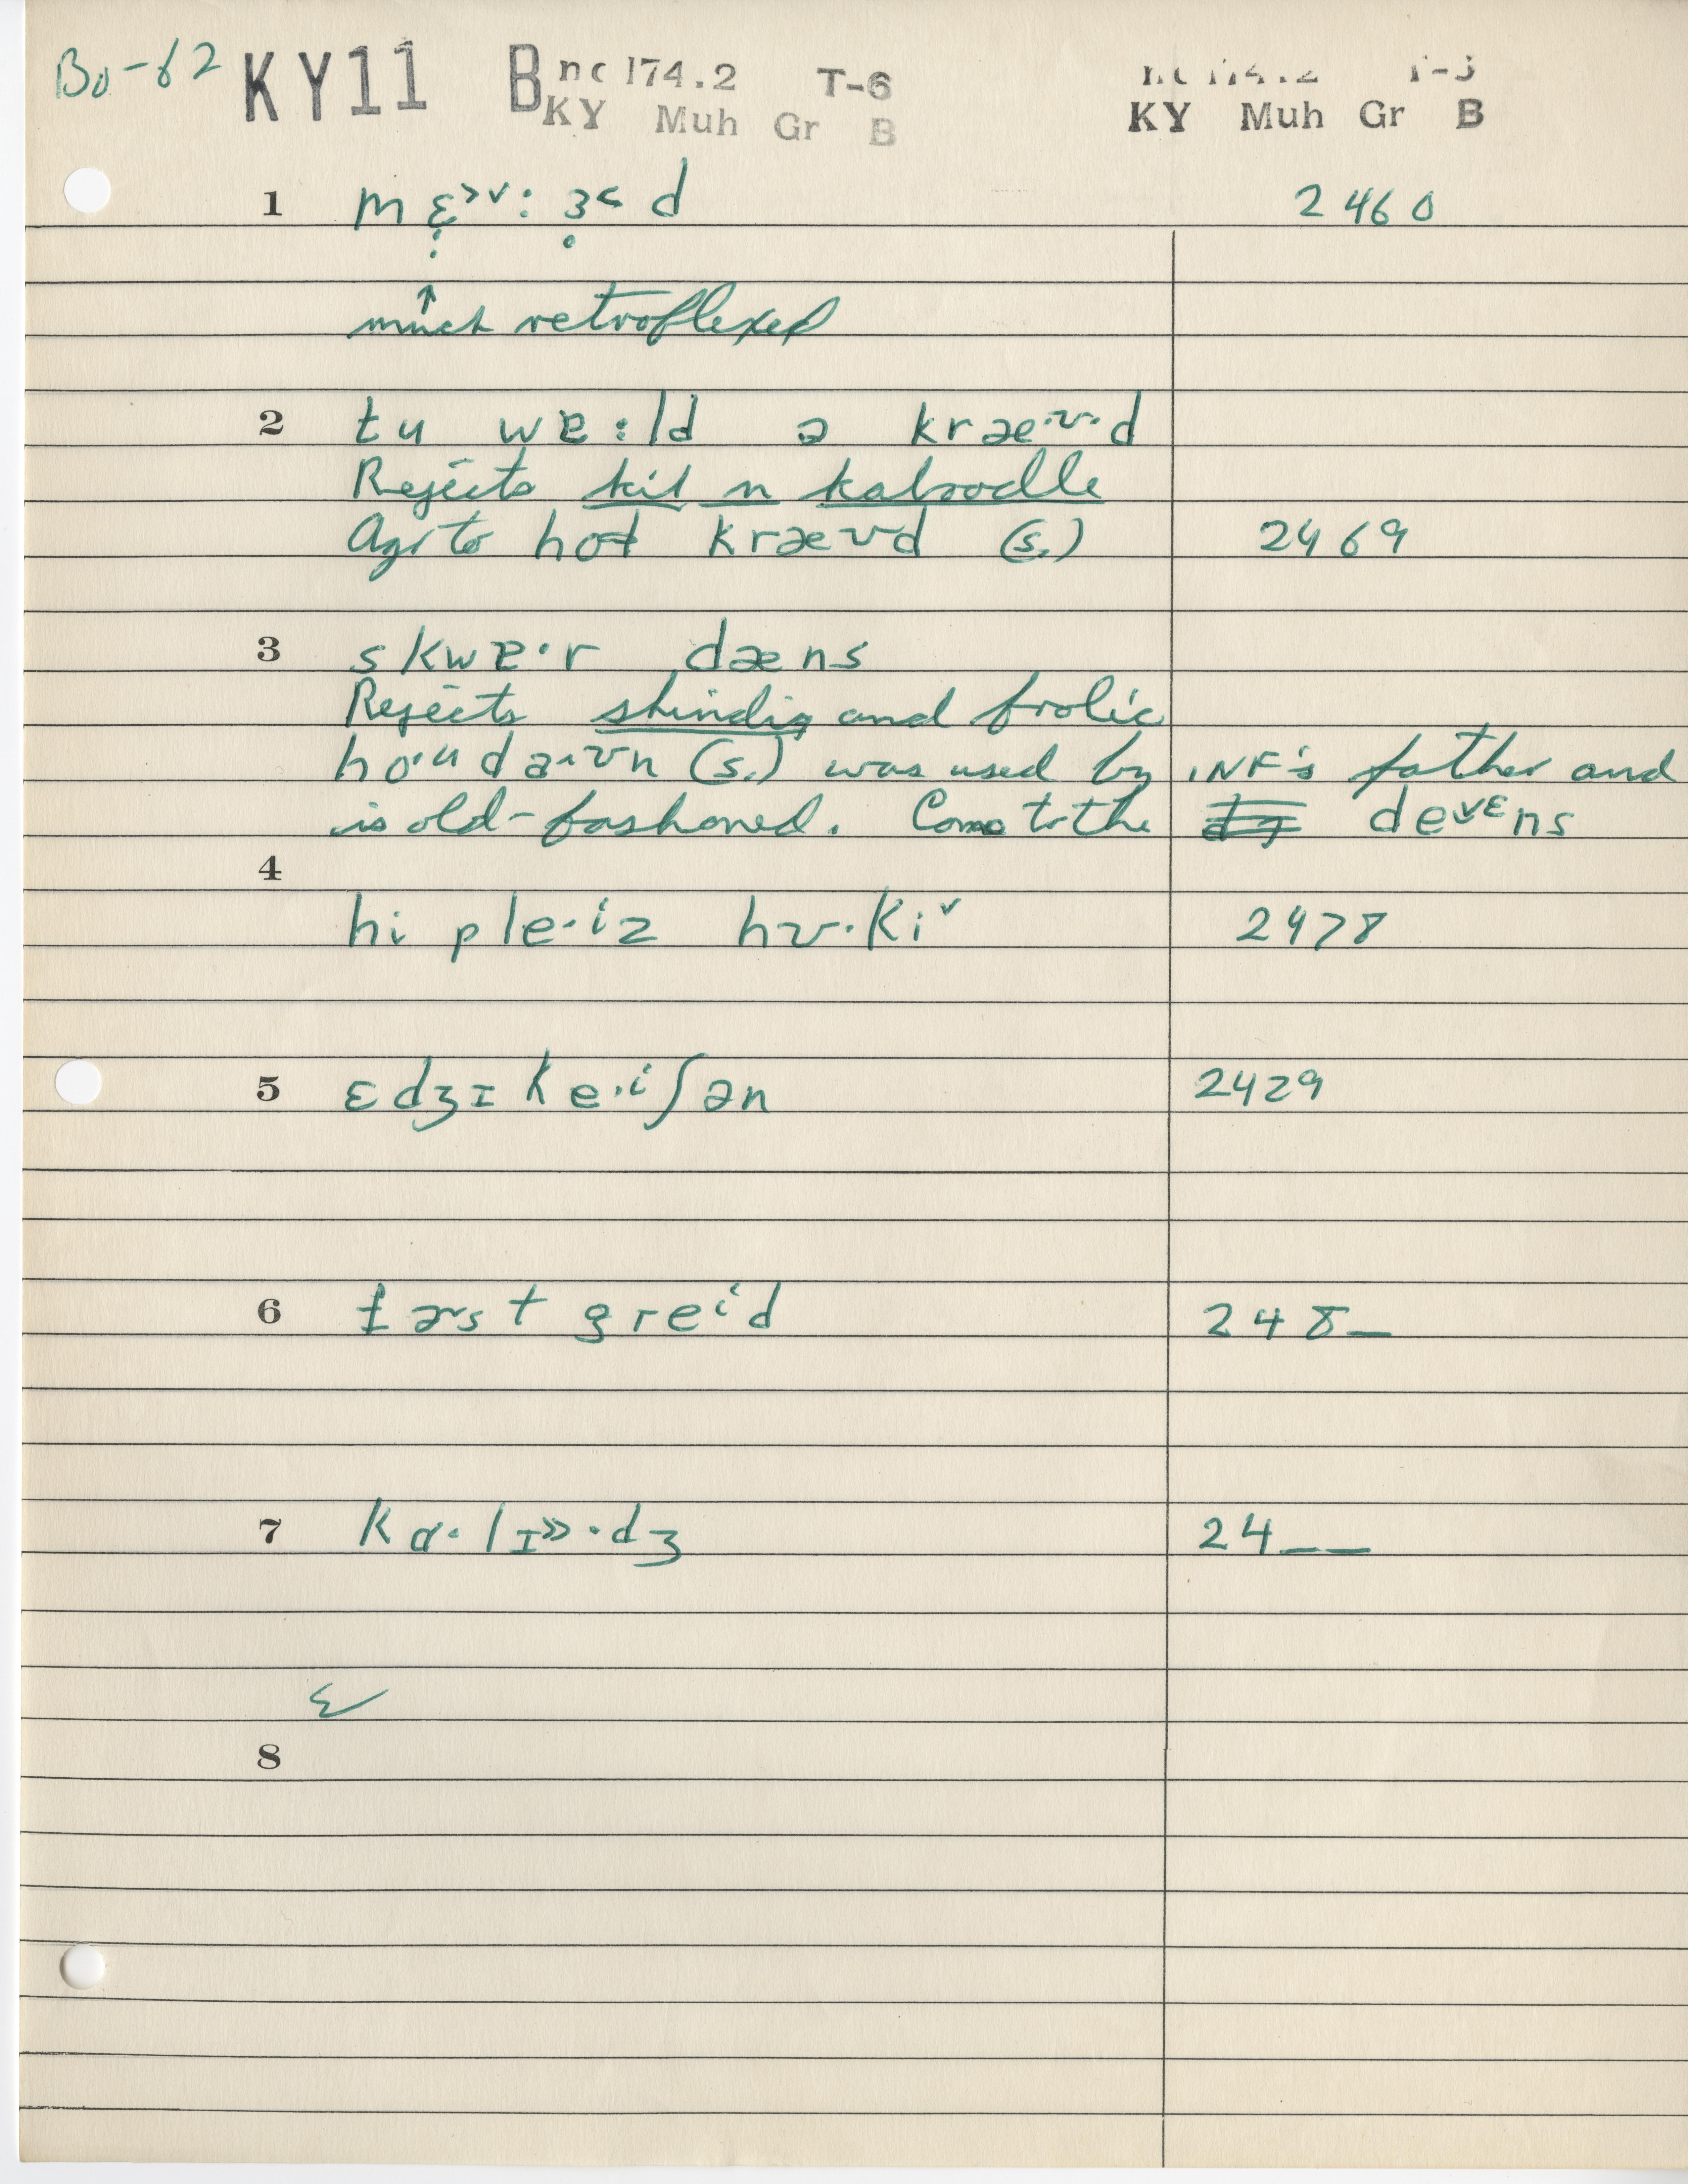 Bo-62 KY11 B nc 174.2 T-6 nc 174.2 T-5
KY Muh Gr B KY Muh Gr B
1 mɛ˃˅: ɜ˂ d 2460
much retroflexed
2 tu wɐ:ld ə kræ·ʊ·d
Rejects kit n kaboodle
Agr to hol kræʊd (s.) 2469
3 skwɐ·r dæns
Rejects shindig and frolic
ho·u da·ʊn (s.) was used by INF's father and
is old-fashioned. Come to the de˅ᵋns
4
hi ple·iz hʊ·ki˅ 2478
5 ɛdʒɪke·iʃən 2429
6 fɚst greⁱd 248_
7 kɑ·lɪ˃˃·dʒ 24__
ɛ
8